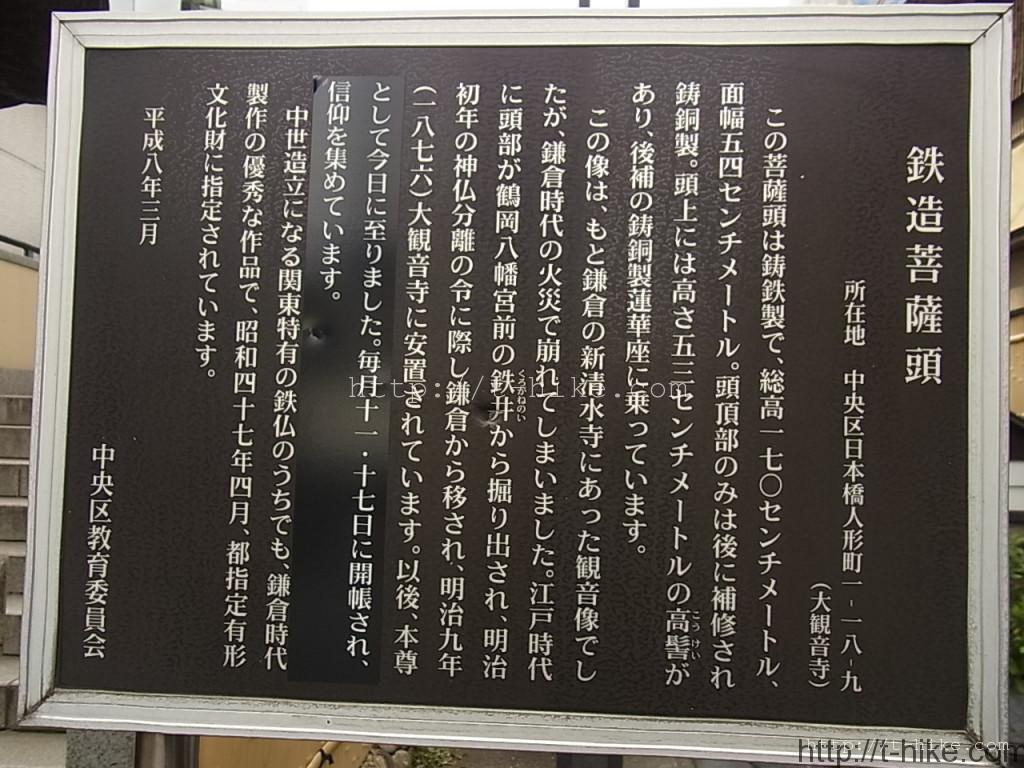 鉄造菩薩頭
所在地　中央区日本橋人形町一-一八-九
（大観音寺）
この菩薩頭は鋳鉄製で、総高一七〇センチメートル、
面幅五四センチメートル。頭頂部のみは後に補修され
鋳銅製。頭上には高さ五三センチメートルの高髻が
こうけい
あり、後補の鋳銅製蓮華座に乗っています。
この像は、もと鎌倉の新清水寺にあった観音像でし
たが、鎌倉時代の火災で崩れてしまいました。江戸時代
に頭部が鶴岡八幡宮前の鉄井から掘り出され、明治
くろがねのい
初年の神仏分離の令に際し鎌倉から移され、明治九年
（一八七六）大観音寺に安置されています。以後、本尊
として今日に至りました。毎月十一・十七日に開帳され、
信仰を集めています。
中世造立になる関東特有の鉄仏のうちでも、鎌倉時代
製作の優秀な作品で、昭和四十七年四月、都指定有形
文化財に指定されています。
平成八年三月
中央区教育委員会
http://t-hike.com
http://t-hike.com
http://t-hike.com